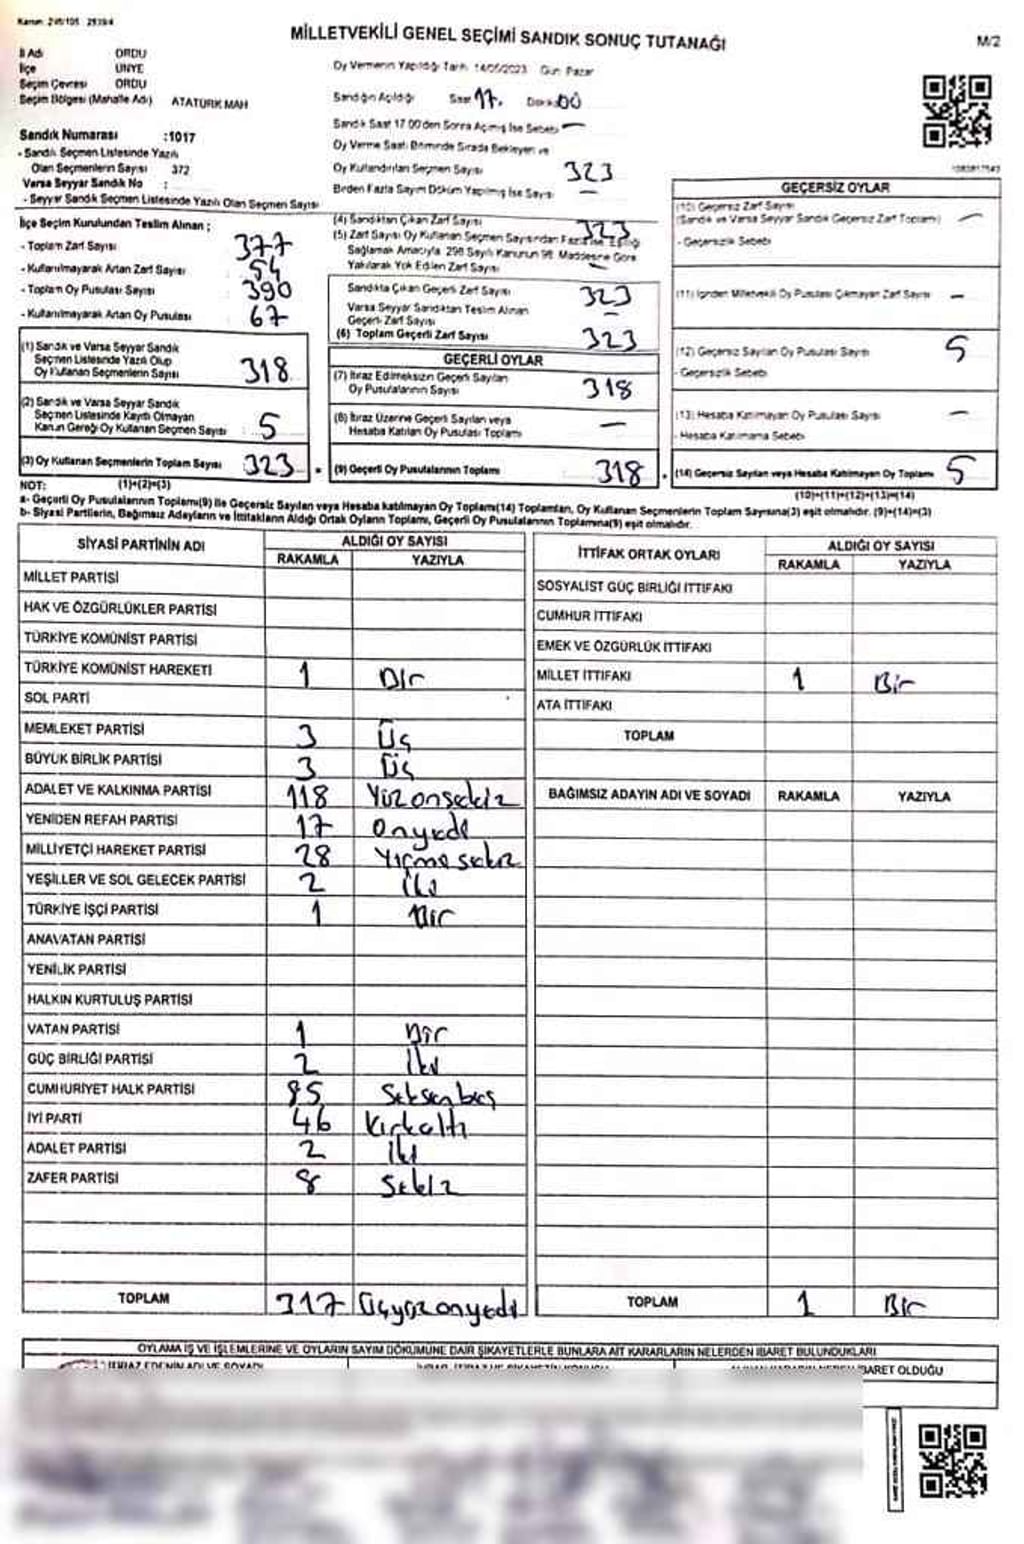 Kanun: 298/105 2839/4
MİLLETVEKİLİ GENEL SEÇİMİ SANDIK SONUÇ TUTANAĞI
M/2
İl Adı ORDU
İlçe ÜNYE
Seçim Çevresi ORDU
Seçim Bölgesi (Mahalle Adı) ATATÜRK MAH
Sandık Numarası :1017
- Sandık Seçmen Listesinde Yazılı
Olan Seçmenlerin Sayısı 372
Varsa Seyyar Sandık No :
- Seyyar Sandık Seçmen Listesinde Yazılı Olan Seçmen Sayısı
Oy Vermenin Yapıldığı Tarih 14/05/2023 Gün: Pazar
Sandığın Açıldığı Saat 17. Dakika 00
Sandık Saat 17:00'den Sonra Açılmış İse Sebebi —
Oy Verme Saati Bitiminde Sırada Bekleyen ve
Oy Kullandırılan Seçmen Sayısı 323
Birden Fazla Sayım Döküm Yapılmış İse Sayısı —
İlçe Seçim Kurulundan Teslim Alınan ;
- Toplam Zarf Sayısı 377
- Kullanılmayarak Artan Zarf Sayısı 54
- Toplam Oy Pusulası Sayısı 390
- Kullanılmayarak Artan Oy Pusulası 67
(1) Sandık ve Varsa Seyyar Sandık
Seçmen Listesinde Yazılı Olup
Oy Kullanan Seçmenlerin Sayısı 318
(2) Sandık ve Varsa Seyyar Sandık
Seçmen Listesinde Kayıtlı Olmayan
Kanun Gereği Oy Kullanan Seçmen Sayısı 5
(3) Oy Kullanan Seçmenlerin Toplam Sayısı 323
(4) Sandıktan Çıkan Zarf Sayısı 323
(5) Zarf Sayısı Oy Kullanan Seçmen Sayısından Fazla ise, Eşitliği
Sağlamak Amacıyla 298 Sayılı Kanunun 98. Maddesine Göre
Yakılarak Yok Edilen Zarf Sayısı —
Sandıkta Çıkan Geçerli Zarf Sayısı 323
Varsa Seyyar Sandıktan Teslim Alınan
Geçerli Zarf Sayısı —
(6) Toplam Geçerli Zarf Sayısı 323
GEÇERLİ OYLAR
(7) İtiraz Edilmeksizin Geçerli Sayılan
Oy Pusulalarının Sayısı 318
(8) İtiraz Üzerine Geçerli Sayılan veya
Hesaba Katılan Oy Pusulası Toplamı —
(9) Geçerli Oy Pusulalarının Toplamı 318
GEÇERSİZ OYLAR
(10) Geçersiz Zarf Sayısı
(Sandık ve Varsa Seyyar Sandık Geçersiz Zarf Toplamı) —
- Geçersizlik Sebebi
(11) İçinden Milletvekili Oy Pusulası Çıkmayan Zarf Sayısı —
(12) Geçersiz Sayılan Oy Pusulası Sayısı 5
- Geçersizlik Sebebi
(13) Hesaba Katılmayan Oy Pusulası Sayısı —
- Hesaba Katılmama Sebebi
(14) Geçersiz Sayılan veya Hesaba Katılmayan Oy Toplamı 5
NOT: (1)+(2)=(3)
(10)+(11)+(12)+(13)=(14)
a- Geçerli Oy Pusulalarının Toplamı(9) ile Geçersiz Sayılan veya Hesaba katılmayan Oy Toplamı(14) Toplamları, Oy Kullanan Seçmenlerin Toplam Sayısına(3) eşit olmalıdır. (9)+(14)=(3)
b- Siyasi Partilerin, Bağımsız Adayların ve İttifakların Aldığı Ortak Oyların Toplamı, Geçerli Oy Pusulalarının Toplamına(9) eşit olmalıdır.
SİYASİ PARTİNİN ADI ALDIĞI OY SAYISI
RAKAMLA YAZIYLA
MİLLET PARTİSİ
HAK VE ÖZGÜRLÜKLER PARTİSİ
TÜRKİYE KOMÜNİST PARTİSİ
TÜRKİYE KOMÜNİST HAREKETİ 1 Bir
SOL PARTİ
MEMLEKET PARTİSİ 3 Üç
BÜYÜK BİRLİK PARTİSİ 3 Üç
ADALET VE KALKINMA PARTİSİ 118 Yüzonsekiz
YENİDEN REFAH PARTİSİ 17 Onyedi
MİLLİYETÇİ HAREKET PARTİSİ 28 Yirmisekiz
YEŞİLLER VE SOL GELECEK PARTİSİ 2 İki
TÜRKİYE İŞÇİ PARTİSİ 1 Bir
ANAVATAN PARTİSİ
YENİLİK PARTİSİ
HALKIN KURTULUŞ PARTİSİ
VATAN PARTİSİ 1 Bir
GÜÇ BİRLİĞİ PARTİSİ 2 İki
CUMHURİYET HALK PARTİSİ 85 Seksenbeş
İYİ PARTİ 46 Kırkaltı
ADALET PARTİSİ 2 İki
ZAFER PARTİSİ 8 Sekiz
TOPLAM 317 Üçyüzonyedi
İTTİFAK ORTAK OYLARI ALDIĞI OY SAYISI
RAKAMLA YAZIYLA
SOSYALİST GÜÇ BİRLİĞİ İTTİFAKI
CUMHUR İTTİFAKI
EMEK VE ÖZGÜRLÜK İTTİFAKI
MİLLET İTTİFAKI 1 Bir
ATA İTTİFAKI
TOPLAM
BAĞIMSIZ ADAYIN ADI VE SOYADI RAKAMLA YAZIYLA
TOPLAM 1 Bir
OYLAMA İŞ VE İŞLEMLERİNE VE OYLARIN SAYIM DÖKÜMÜNE DAİR ŞİKAYETLERLE BUNLARA AİT KARARLARIN NELERDEN İBARET BULUNDUKLARI
İTİRAZ EDENİN ADI VE SOYADI
İBARET OLDUĞU